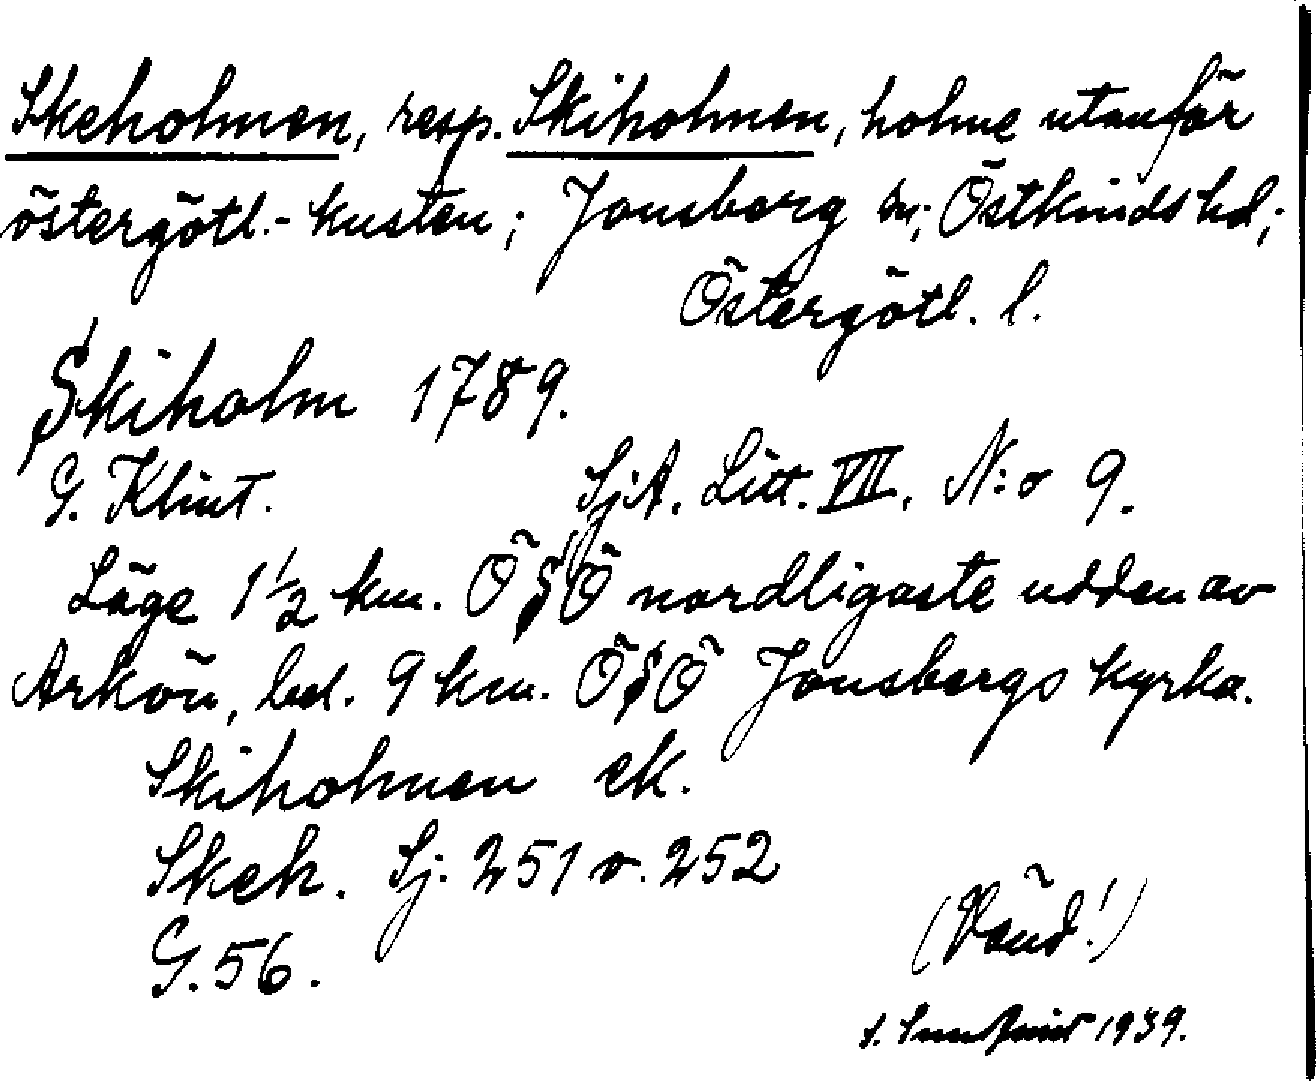 Skeholmen, resp. Skiholmen, holme utanför
östergötl.-kusten; Jonsberg sn; Östkinds hd;
Östergötl. l.
Skiholm 1789.
G. Klint. SjA. Litt. VIII. N:o 9.
Läge 1 1/2 km. ÖSÖ nordligaste udden av
Arkön, bel. 9 km. ÖSÖ Jonsbergs kyrka.
Skiholmen ek.
Skeh. Sj. 251 o. 252
G. 56.
(Vänd!)
1939.